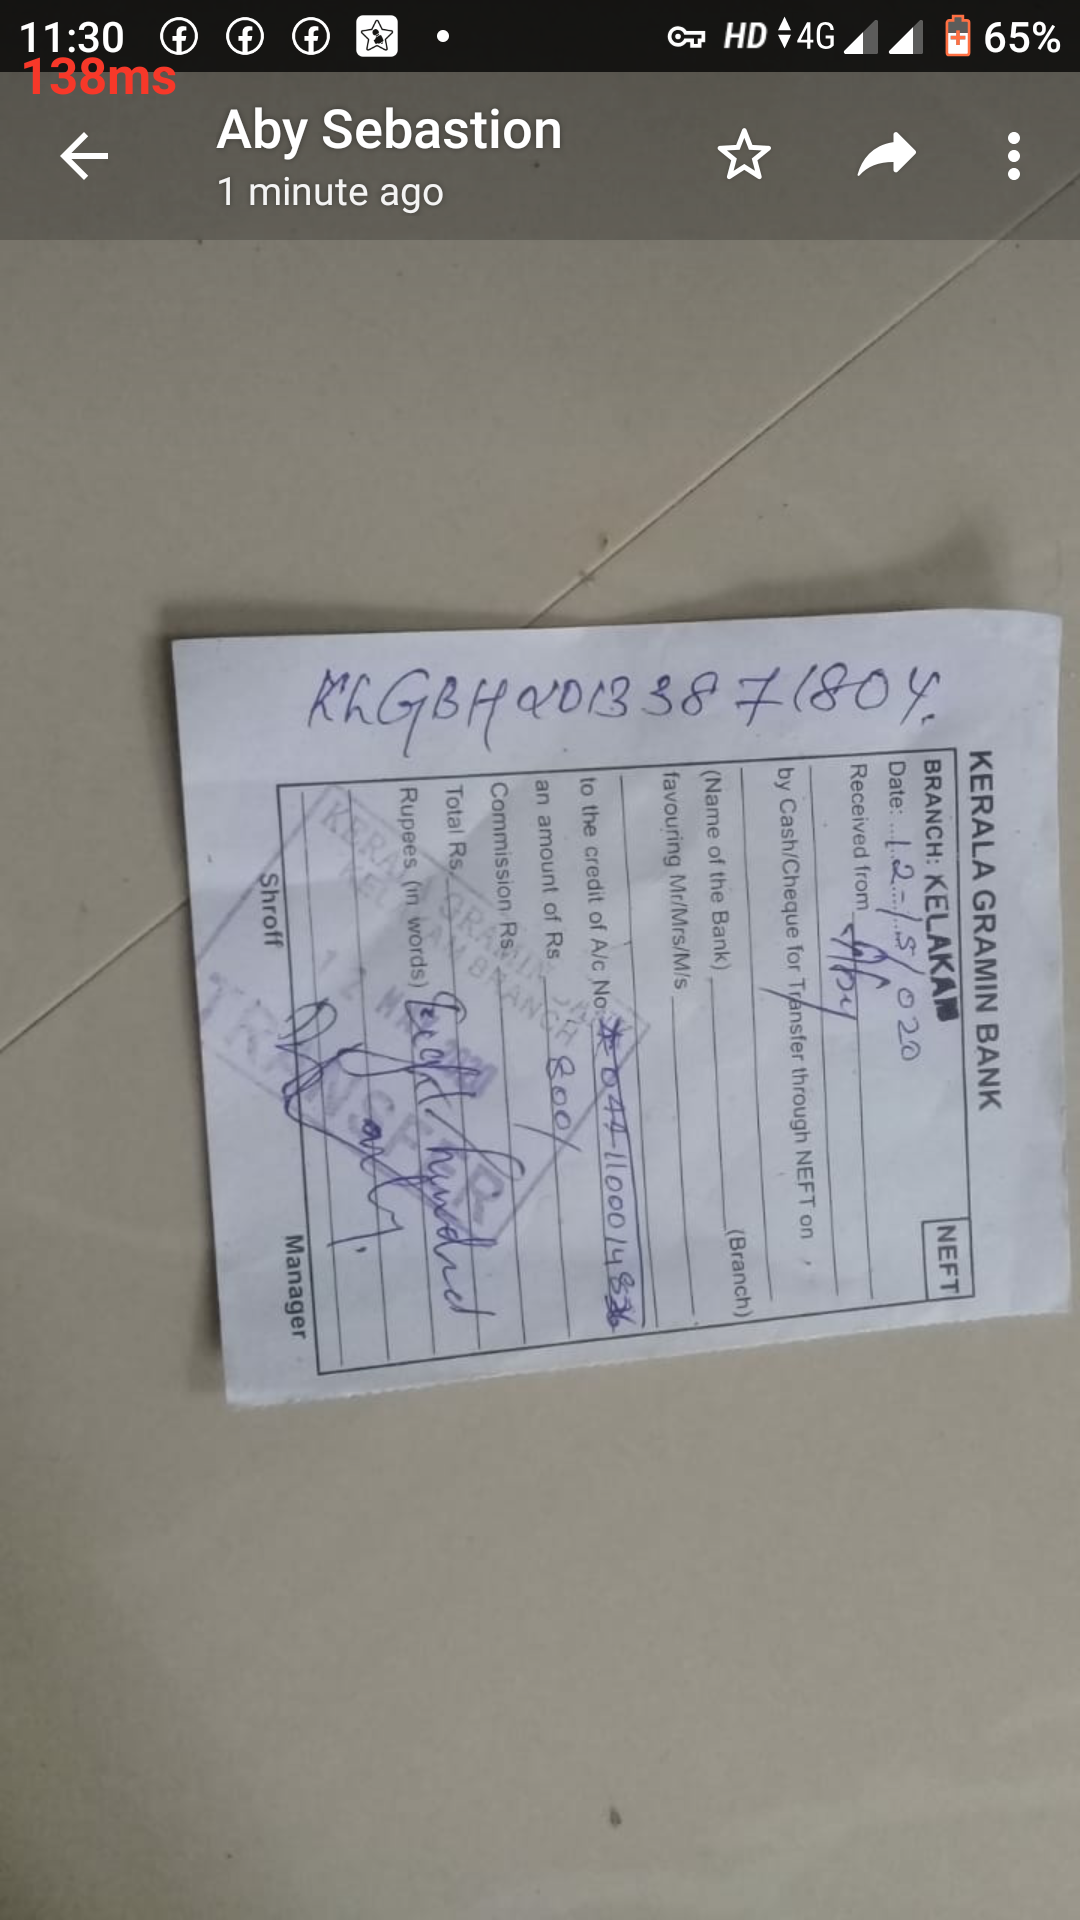 11:30 HD 4G 65%
138ms
Aby Sebastion
1 minute ago
KLGBH20133871804.
KERALA GRAMIN BANK
BRANCH: KELAKAM
NEFT
Date: 12-/5/020
Received from Aby
by Cash/Cheque for Transfer through NEFT on
(Name of the Bank) (Branch)
favouring Mr/Mrs/M/s
to the credit of A/c No.
an amount of Rs 800/
Commission Rs.
Total Rs.
Rupees (in words) Eight hundred
only.
Shroff Manager
KERALA GRAMIN BANK
KELAKAM BRANCH
TRANSFER